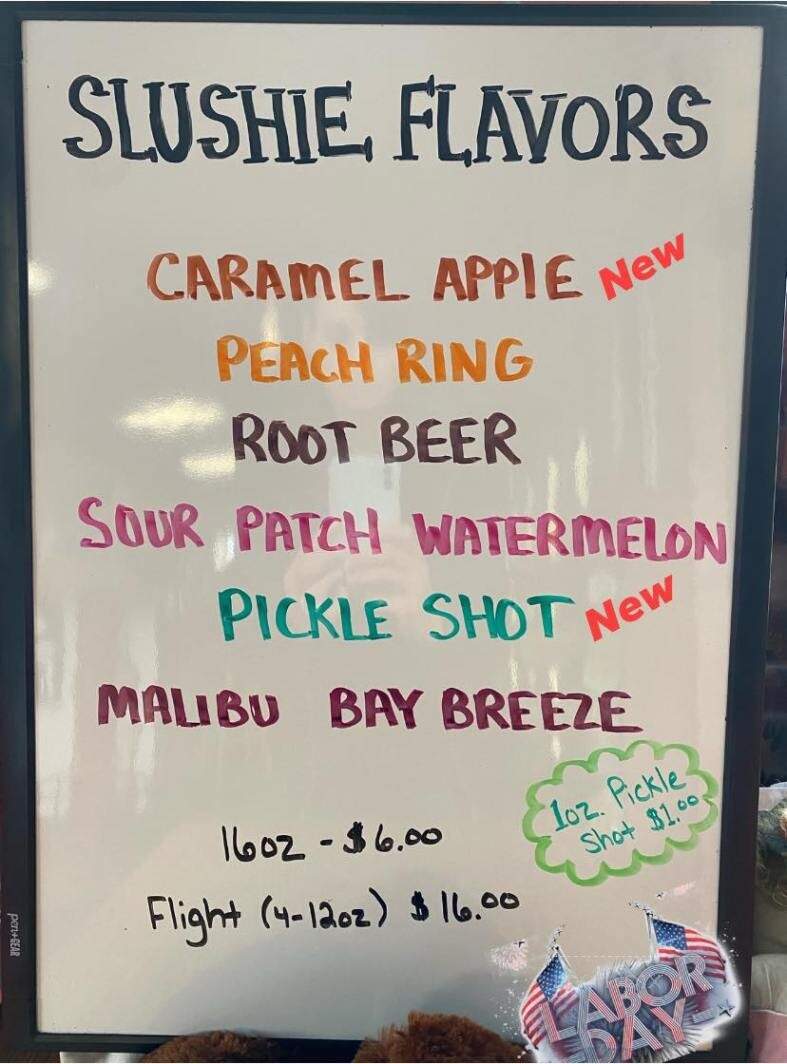 SLUSHIE FLAVORS
CARAMEL APPlE New
PEACH RING
ROOT BEER
SOUR PATCH WATERMELON
PICKLE SHOT New
MALIBU BAY BREEZE
1oz. Pickle
Shot $1.00
16oz - $6.00
Flight (4-12oz) $16.00
LABOR
DAY